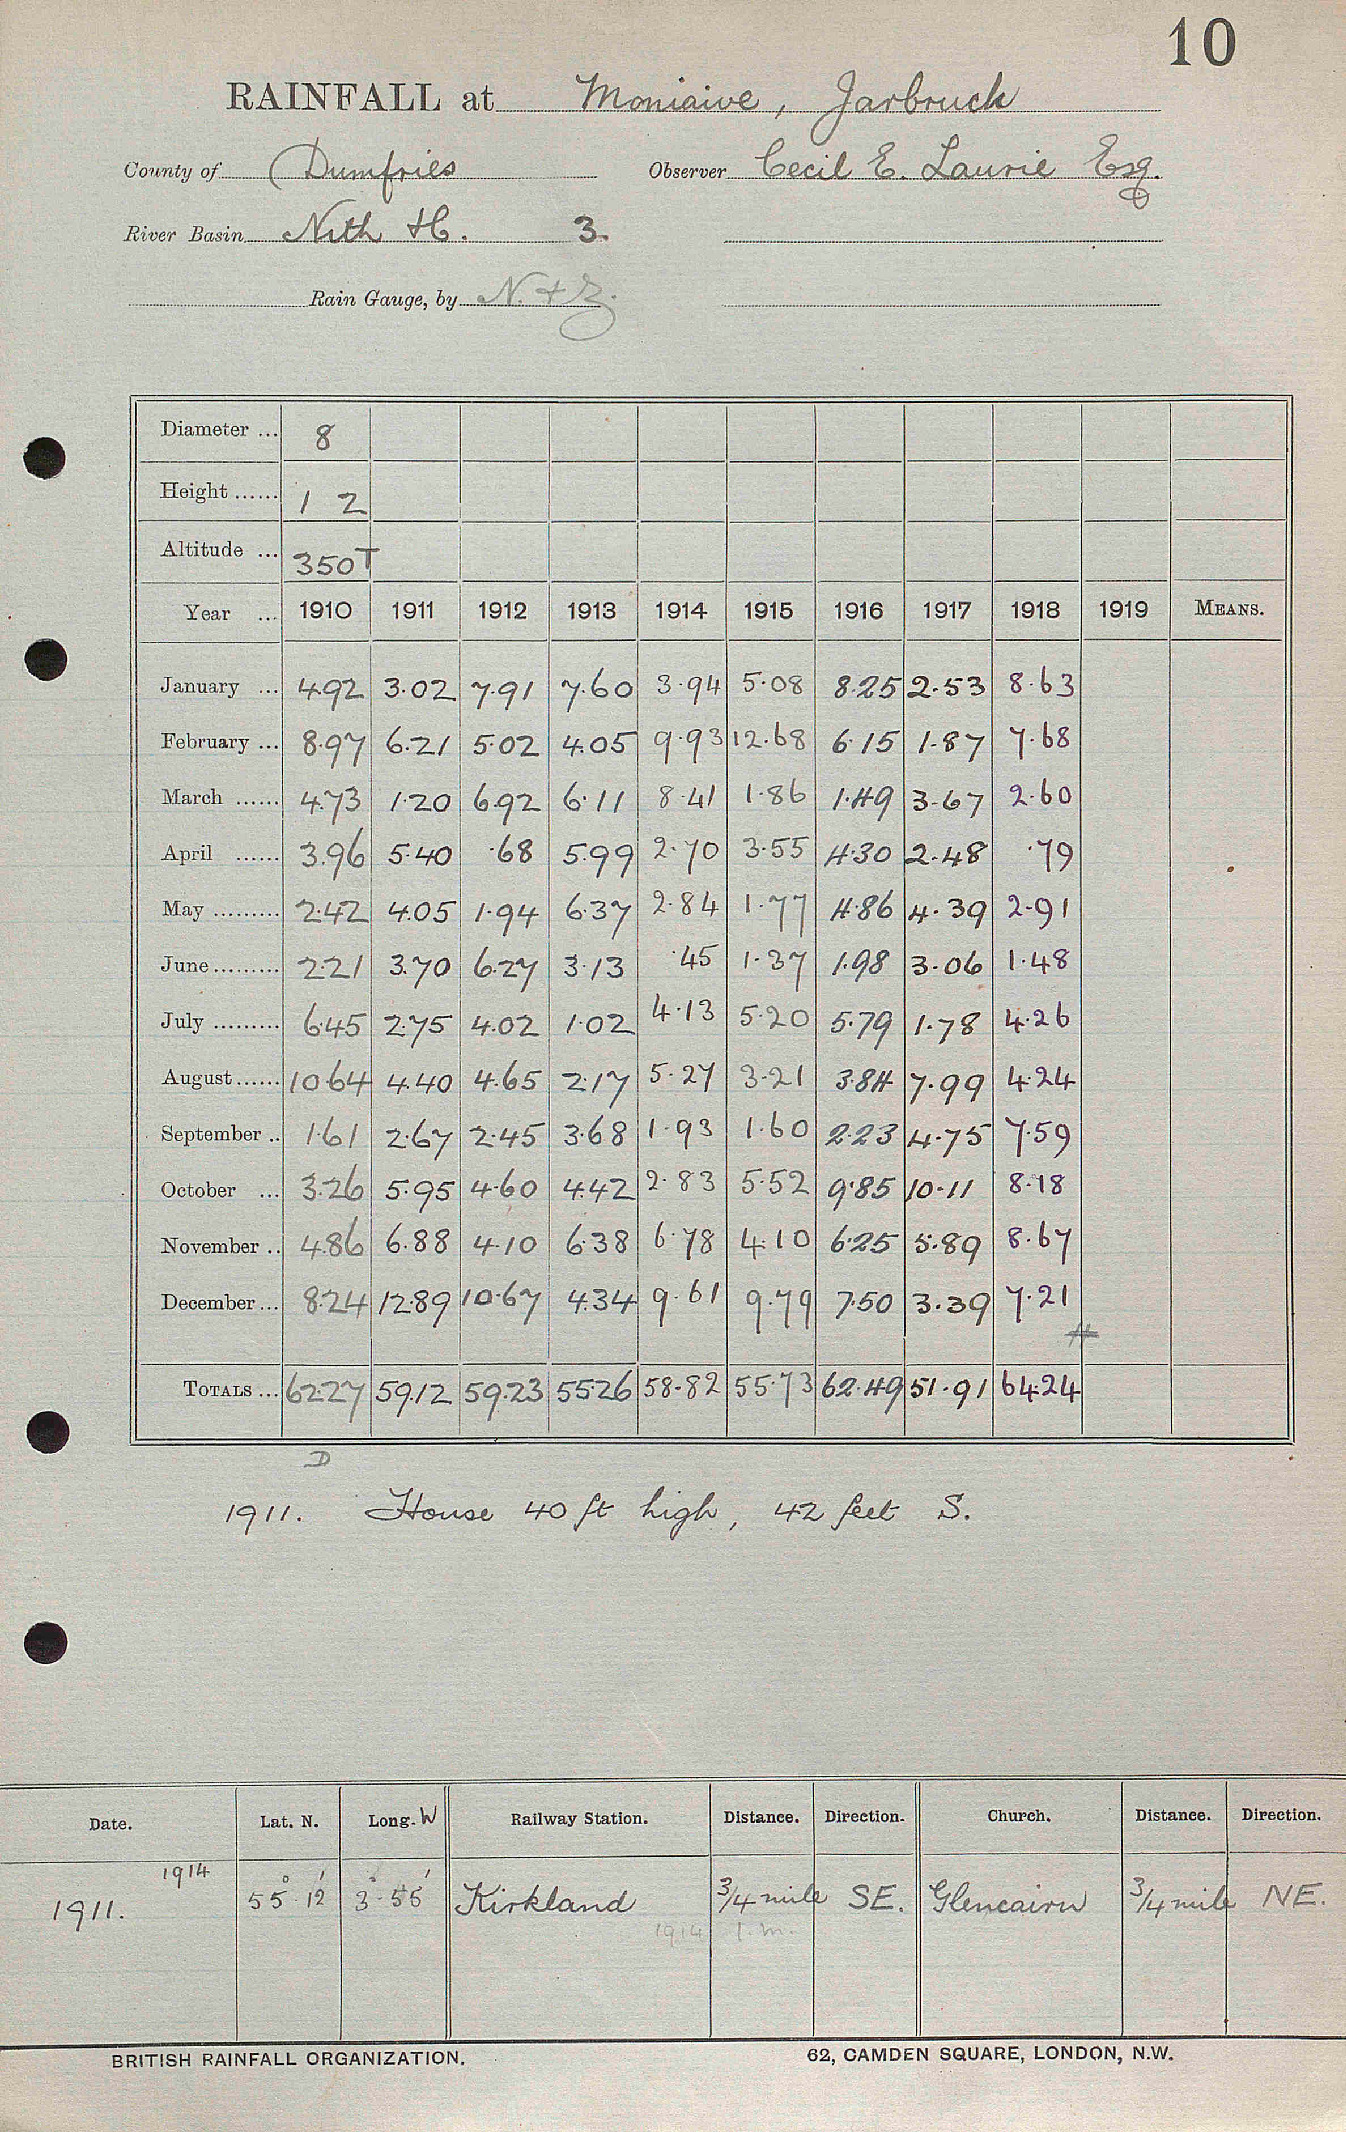 10
RAINFALL at Moniaive, Jarbruck
County of Dumfries Observer Cecil E. Laurie Esq.
River Basin Nith H. 3.
Rain Gauge, by N. & Z.
Diameter ... 8
Height ...... 1 2
Altitude ... 350T
Year ... 1910 1911 1912 1913 1914 1915 1916 1917 1918 1919 MEANS.
January ... 4.92 3.02 7.91 7.60 3.94 5.08 8.25 2.53 8.63
February ... 8.97 6.21 5.02 4.05 9.93 12.68 6.15 1.87 7.68
March ...... 4.73 1.20 6.92 6.11 8.41 1.86 1.49 3.67 2.60
April ...... 3.96 5.40 .68 5.99 2.70 3.55 4.30 2.48 .79
May ......... 2.42 4.05 1.94 6.37 2.84 1.77 4.86 4.39 2.91
June ......... 2.21 3.70 6.27 3.13 .45 1.37 1.98 3.06 1.48
July ......... 6.45 2.75 4.02 1.02 4.13 5.20 5.79 1.78 4.26
August...... 10.64 4.40 4.65 2.17 5.27 3.21 3.84 7.99 4.24
September .. 1.61 2.67 2.45 3.68 1.93 1.60 2.23 4.75 7.59
October ... 3.26 5.95 4.60 4.42 2.83 5.52 9.85 10.11 8.18
November .. 4.86 6.88 4.10 6.38 6.78 4.10 6.25 5.89 8.67
December ... 8.24 12.89 10.67 4.34 9.61 9.79 7.50 3.39 7.21
TOTALS ... 62.27 59.12 59.23 55.26 58.82 55.73 62.49 51.91 64.24
D
1911. House 40 ft high, 42 feet S.
Date. Lat. N. Long. W Railway Station. Distance. Direction. Church. Distance. Direction.
1914
1911. 55° 12' 3° 55' Kirkland 3/4 mile SE. Glencairn 3/4 mile NE.
1914 1. m.
BRITISH RAINFALL ORGANIZATION. 62, CAMDEN SQUARE, LONDON, N.W.